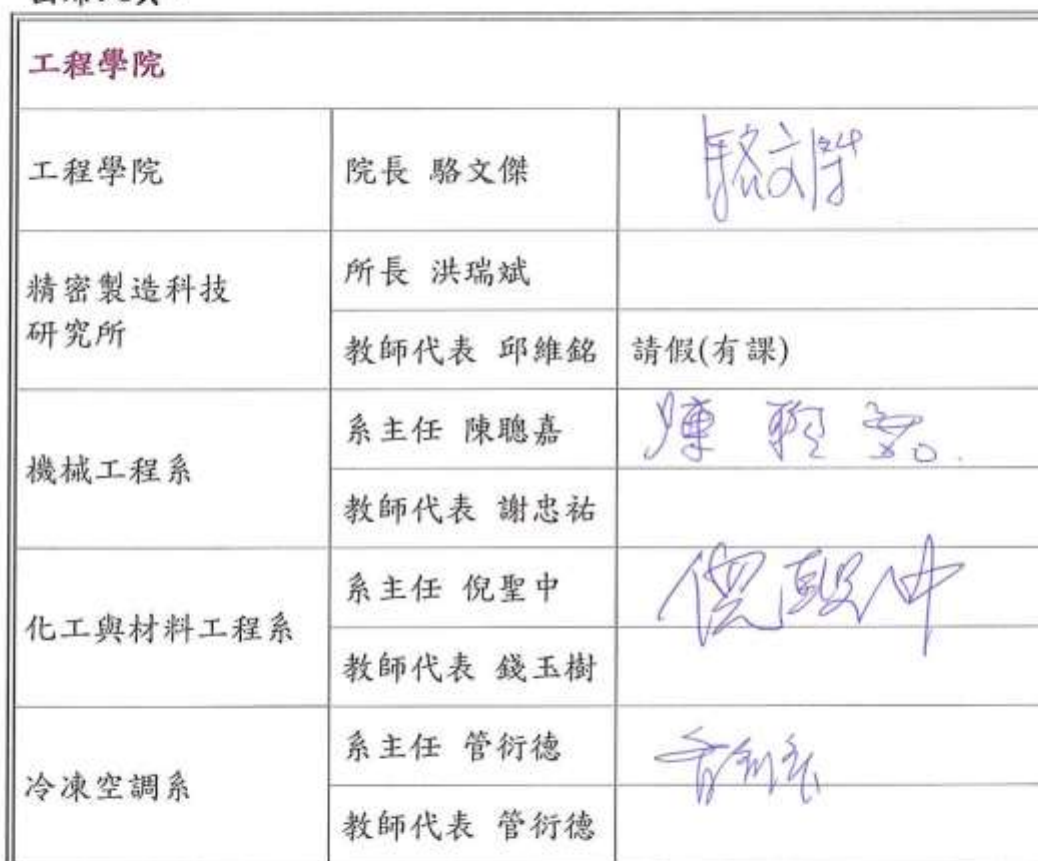 工程學院
工程學院
院長 駱文傑
駱文傑
精密製造科技
研究所
所長 洪瑞斌
教師代表 邱維銘
請假(有課)
機械工程系
系主任 陳聰嘉
陳聰嘉
教師代表 謝忠祐
化工與材料工程系
系主任 倪聖中
倪聖中
教師代表 錢玉樹
冷凍空調系
系主任 管衍德
管衍德
教師代表 管衍德